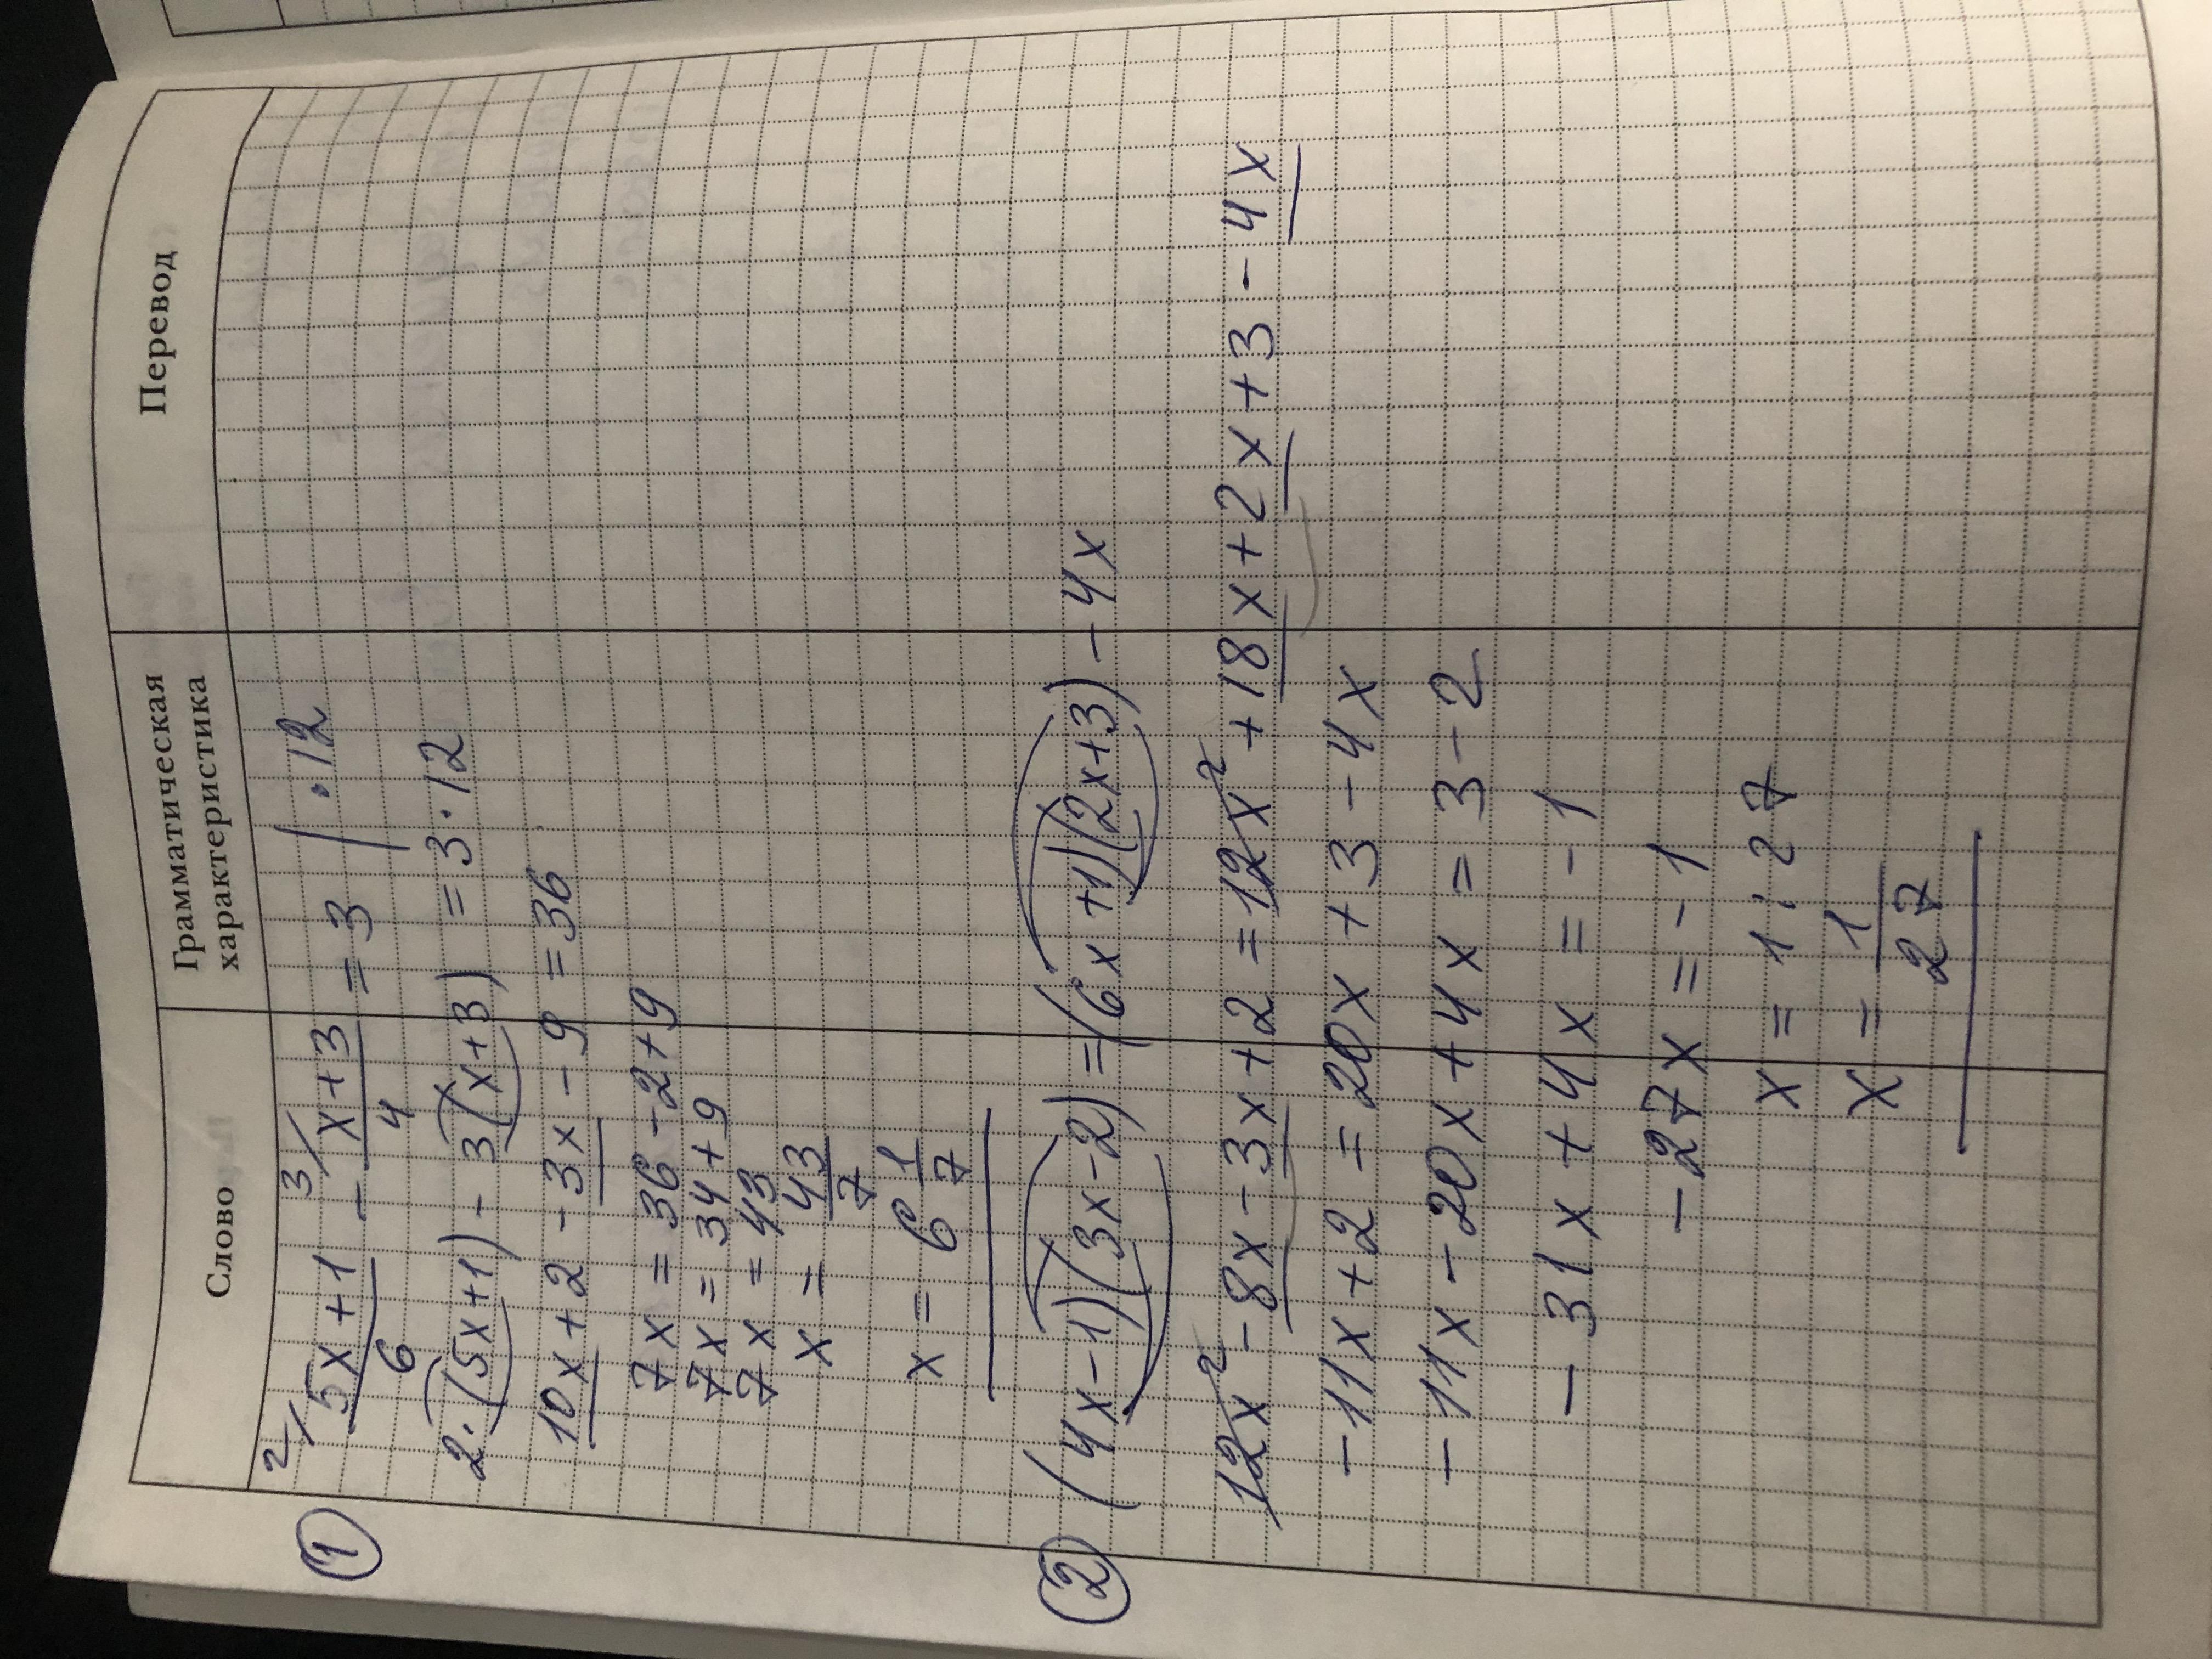 Слово Грамматическая характеристика Перевод
① 2/ 5x+1/6 - 3/ x+3/4 = 3 | · 12
2·(5x+1) - 3(x+3) = 3·12
10x+2 - 3x - 9 = 36
7x = 36 - 2 + 9
7x = 34 + 9
7x = 43
x = 43/7
x = 6 1/7
② (4x-1)(3x-2) = (6x+1)(2x+3) - 4x
12x² - 8x - 3x + 2 = 12x² + 18x + 2x + 3 - 4x
-11x + 2 = 20x + 3 - 4x
-11x - 20x + 4x = 3 - 2
-31x + 4x = -1
-27x = -1
x = 1 : 27
x = 1/27